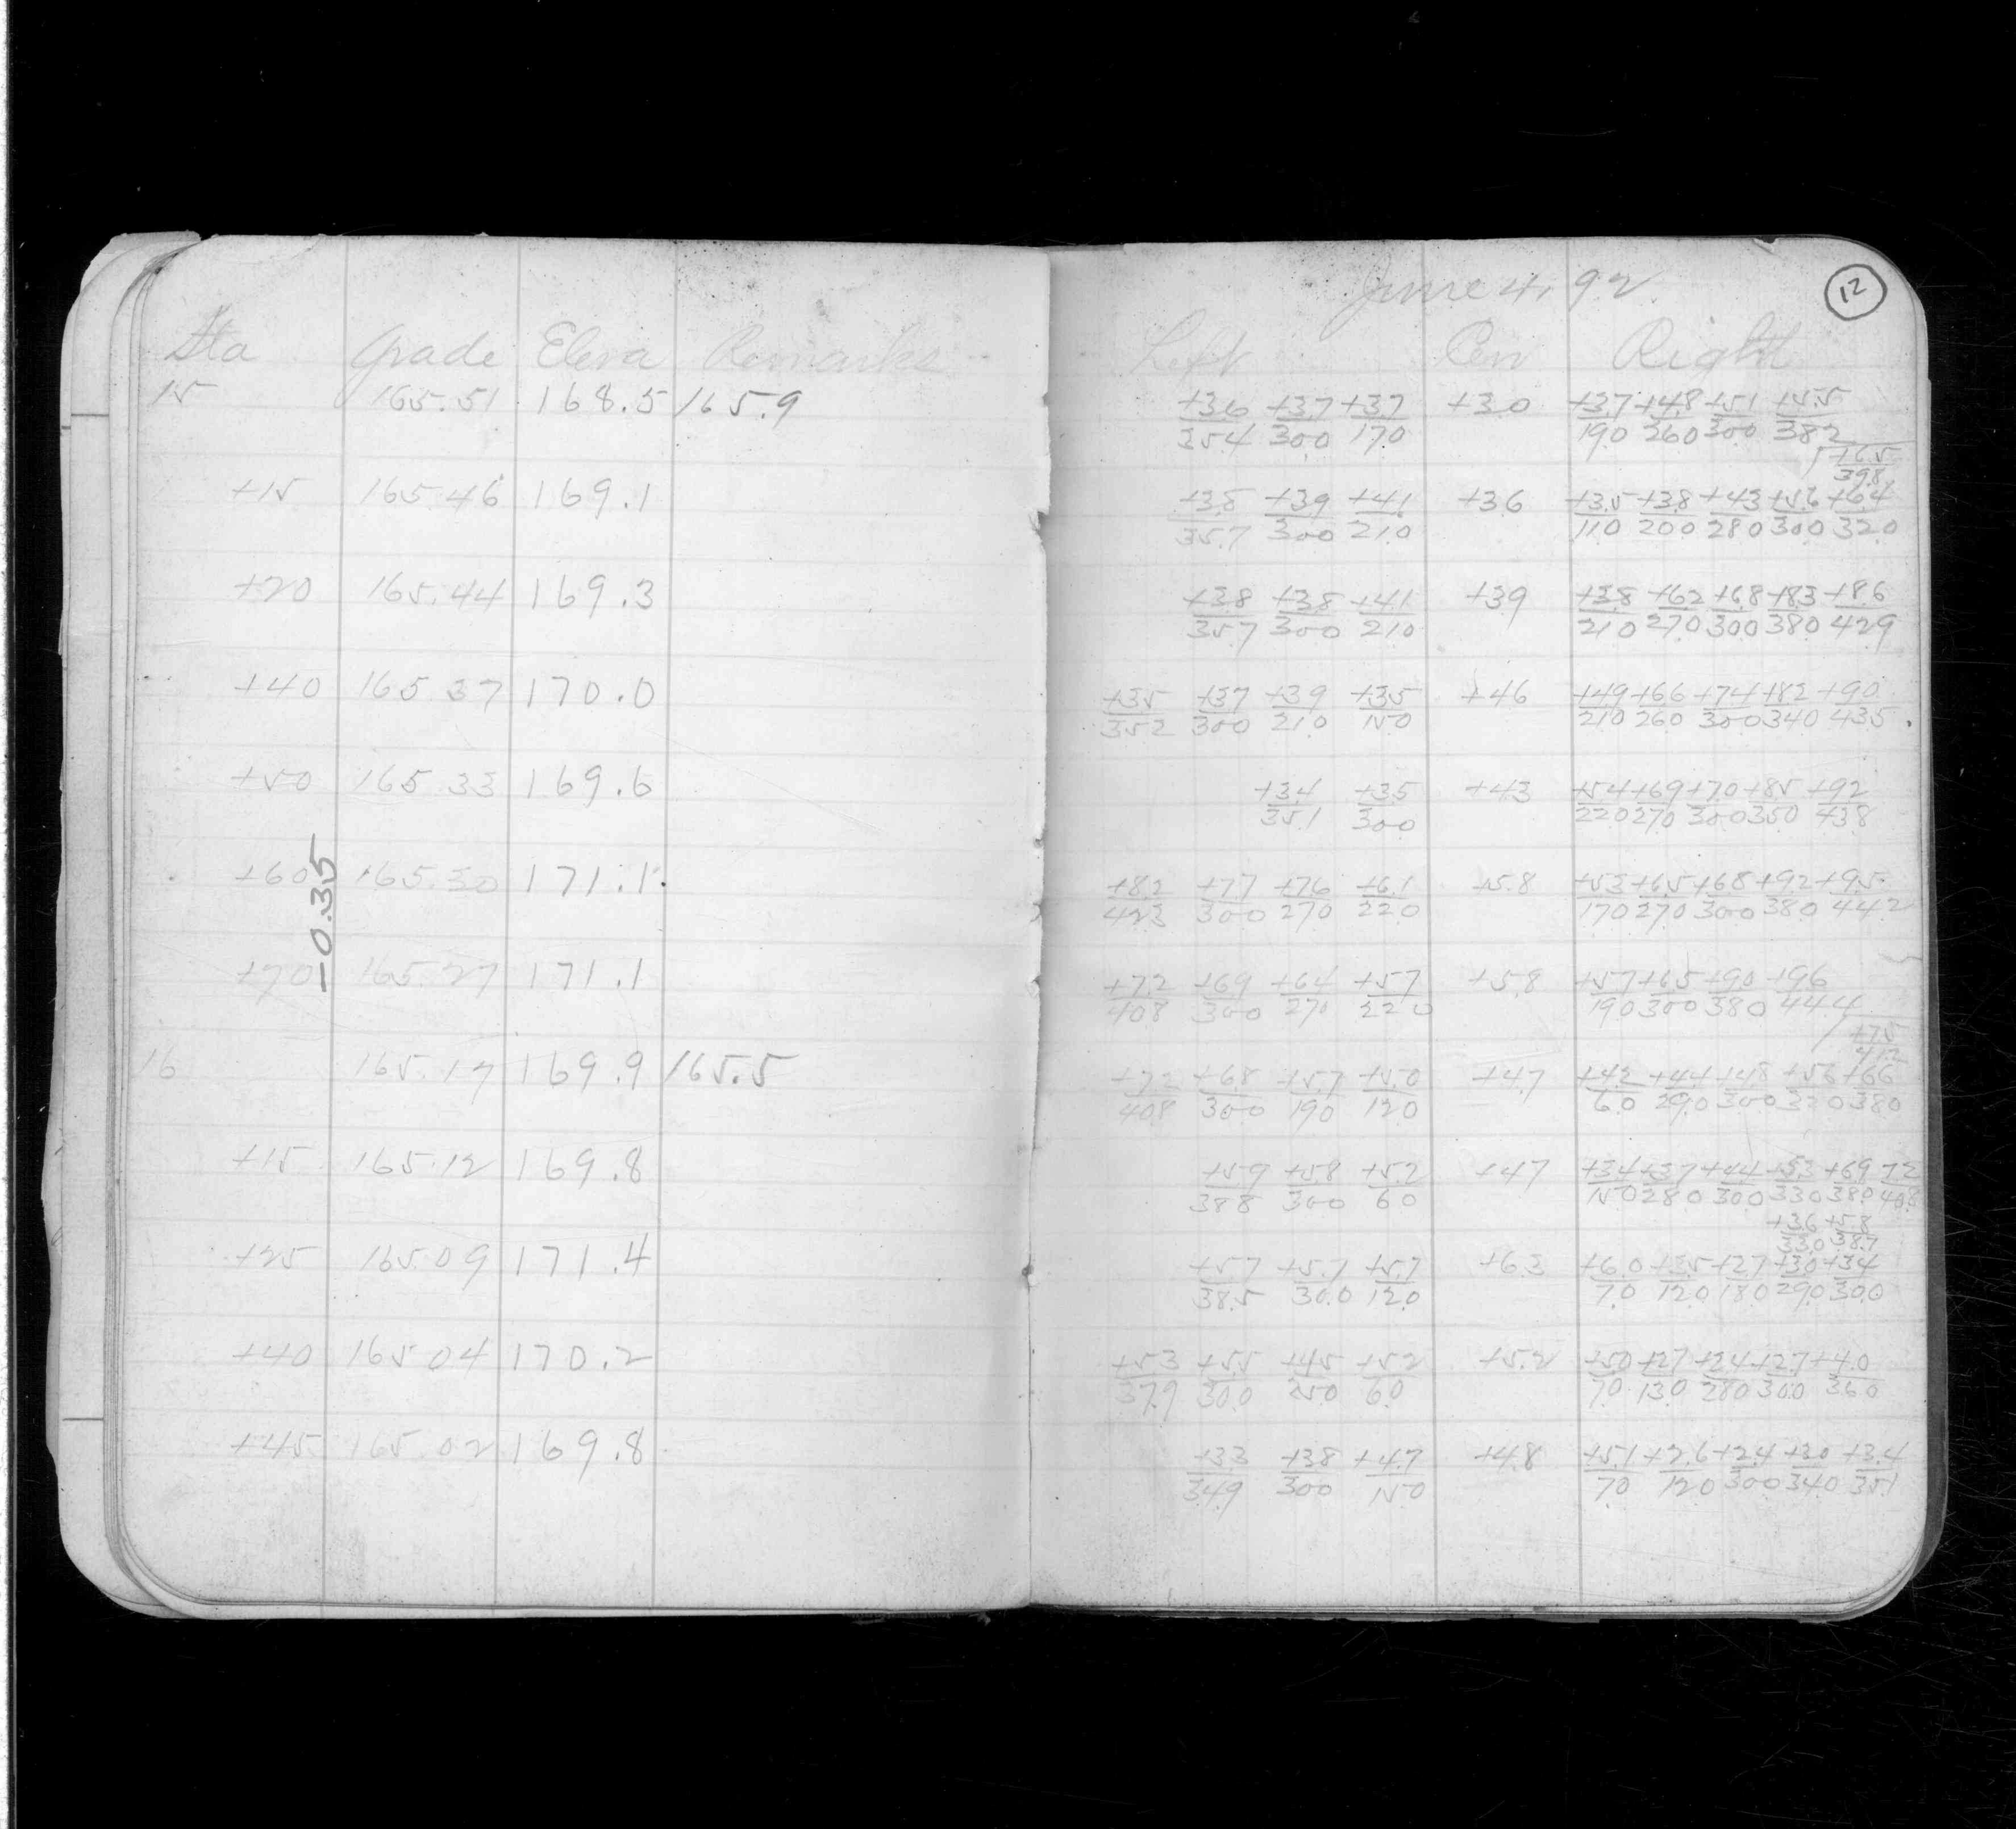 June 4, 92
12
Sta Grade Eleva Remarks Left Cen Right
15 165.51 168.5 165.9 +3.6 +3.7 +3.7 +3.0 +3.7 +4.8 +5.1 +5.5
35.4 30.0 17.0 19.0 26.0 30.0 38.2
+6.5
39.8
+15 165.46 169.1 +3.8 +3.9 +4.1 +3.6 +3.5 +3.8 +4.3 +5.6 +6.4
35.7 30.0 21.0 11.0 20.0 28.0 30.0 32.0
+20 165.44 169.3 +3.8 +3.8 +4.1 +3.9 +3.8 +6.2 +6.8 +8.3 +8.6
35.7 30.0 21.0 21.0 27.0 30.0 38.0 42.9
+40 165.37 170.0 +3.5 +3.7 +3.9 +3.5 +4.6 +4.9 +6.6 +7.4 +8.2 +9.0
35.2 30.0 21.0 15.0 21.0 26.0 30.0 34.0 43.5
+50 165.33 169.6 +3.4 +3.5 +4.3 +5.4 +6.9 +7.0 +8.5 +9.2
35.1 30.0 22.0 27.0 30.0 35.0 43.8
+60 165.30 171.1 +8.2 +7.7 +7.6 +6.1 +5.8 +5.3 +6.5 +6.8 +9.2 +9.5
42.3 30.0 27.0 22.0 17.0 27.0 30.0 38.0 44.2
-0.35
+70 165.27 171.1 +7.2 +6.9 +6.4 +5.7 +5.8 +5.7 +6.5 +9.0 +9.6
40.8 30.0 27.0 22.0 19.0 30.0 38.0 44.4
+7.5
41.2
16 165.17 169.9 165.5 +7.2 +6.8 +5.7 +5.0 +4.7 +4.2 +4.4 +4.8 +5.6 +6.6
40.8 30.0 19.0 12.0 6.0 29.0 30.0 32.0 38.0
+15 165.12 169.8 +5.9 +5.8 +5.2 +4.7 +3.4 +3.7 +4.4 +5.3 +6.9 7.2
38.8 30.0 6.0 15.0 28.0 30.0 33.0 38.0 40.8
+3.6 +5.8
33.0 38.7
+25 165.09 171.4 +5.7 +5.7 +5.7 +6.3 +6.0 +3.5 +2.7 +3.0 +3.4
38.5 30.0 12.0 7.0 12.0 18.0 29.0 30.0
+40 165.04 170.2 +5.3 +5.5 +4.5 +5.2 +5.2 +5.0 +2.7 +2.4 +2.7 +4.0
37.9 30.0 25.0 6.0 7.0 13.0 28.0 30.0 36.0
+45 165.02 169.8 +3.3 +3.8 +4.7 +4.8 +5.1 +2.6 +2.4 +3.0 +3.4
34.9 30.0 15.0 7.0 12.0 30.0 34.0 35.1